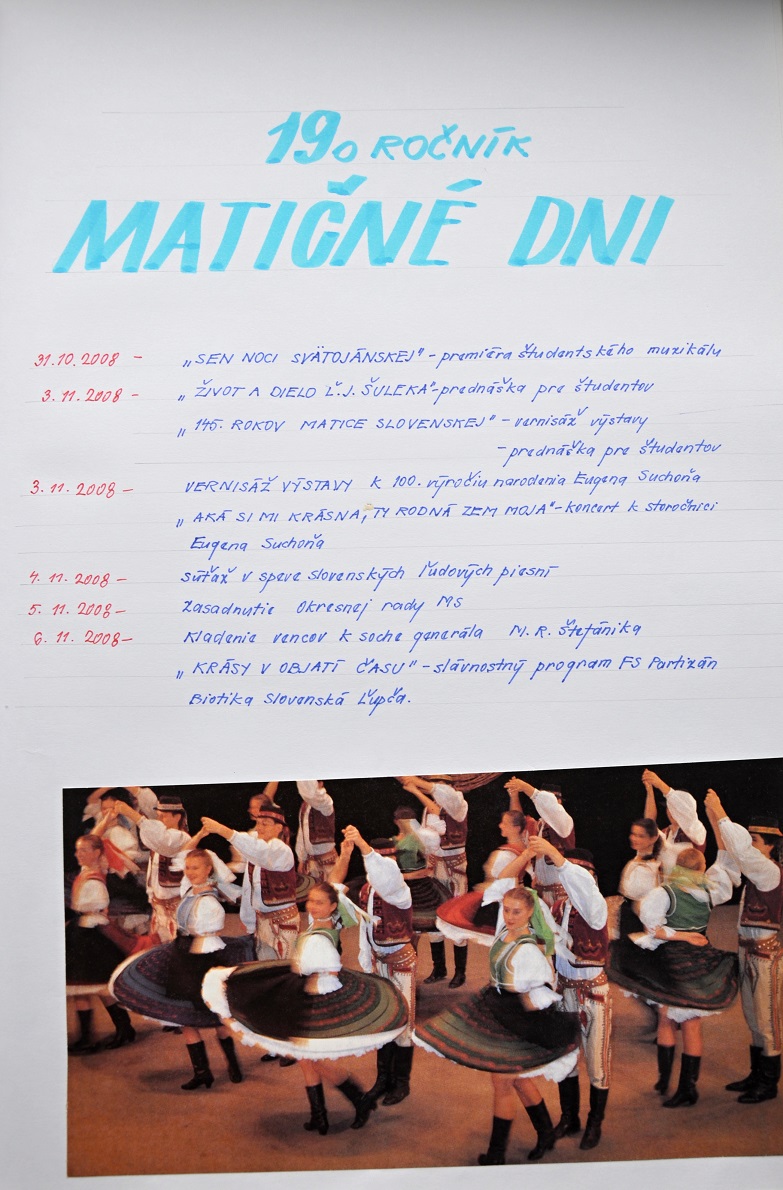 19. ROČNÍK
MATIČNÉ DNI
31.10.2008 – „SEN NOCI SVÄTOJÁNSKEJ" – premiéra študentského muzikálu
3.11.2008 – „ŽIVOT A DIELO Ľ.J. ŠULEKA" – prednáška pre študentov
„145. ROKOV MATICE SLOVENSKEJ" – vernisáž výstavy
– prednáška pre študentov
3.11.2008 – VERNISÁŽ VÝSTAVY k 100. výročiu narodenia Eugena Suchoňa
„AKÁ SI MI KRÁSNA, TY RODNÁ ZEM MOJA" – koncert k storočnici
Eugena Suchoňa
4.11.2008 – súťaž v speve slovenských ľudových piesní
5.11.2008 – zasadnutie Okresnej rady MS
6.11.2008 – Kladenie vencov k soche generála M.R. Štefánika
„KRÁSY V OBJATÍ ČASU" – slávnostný program FS Partizán
Biotika Slovenská Ľupča.